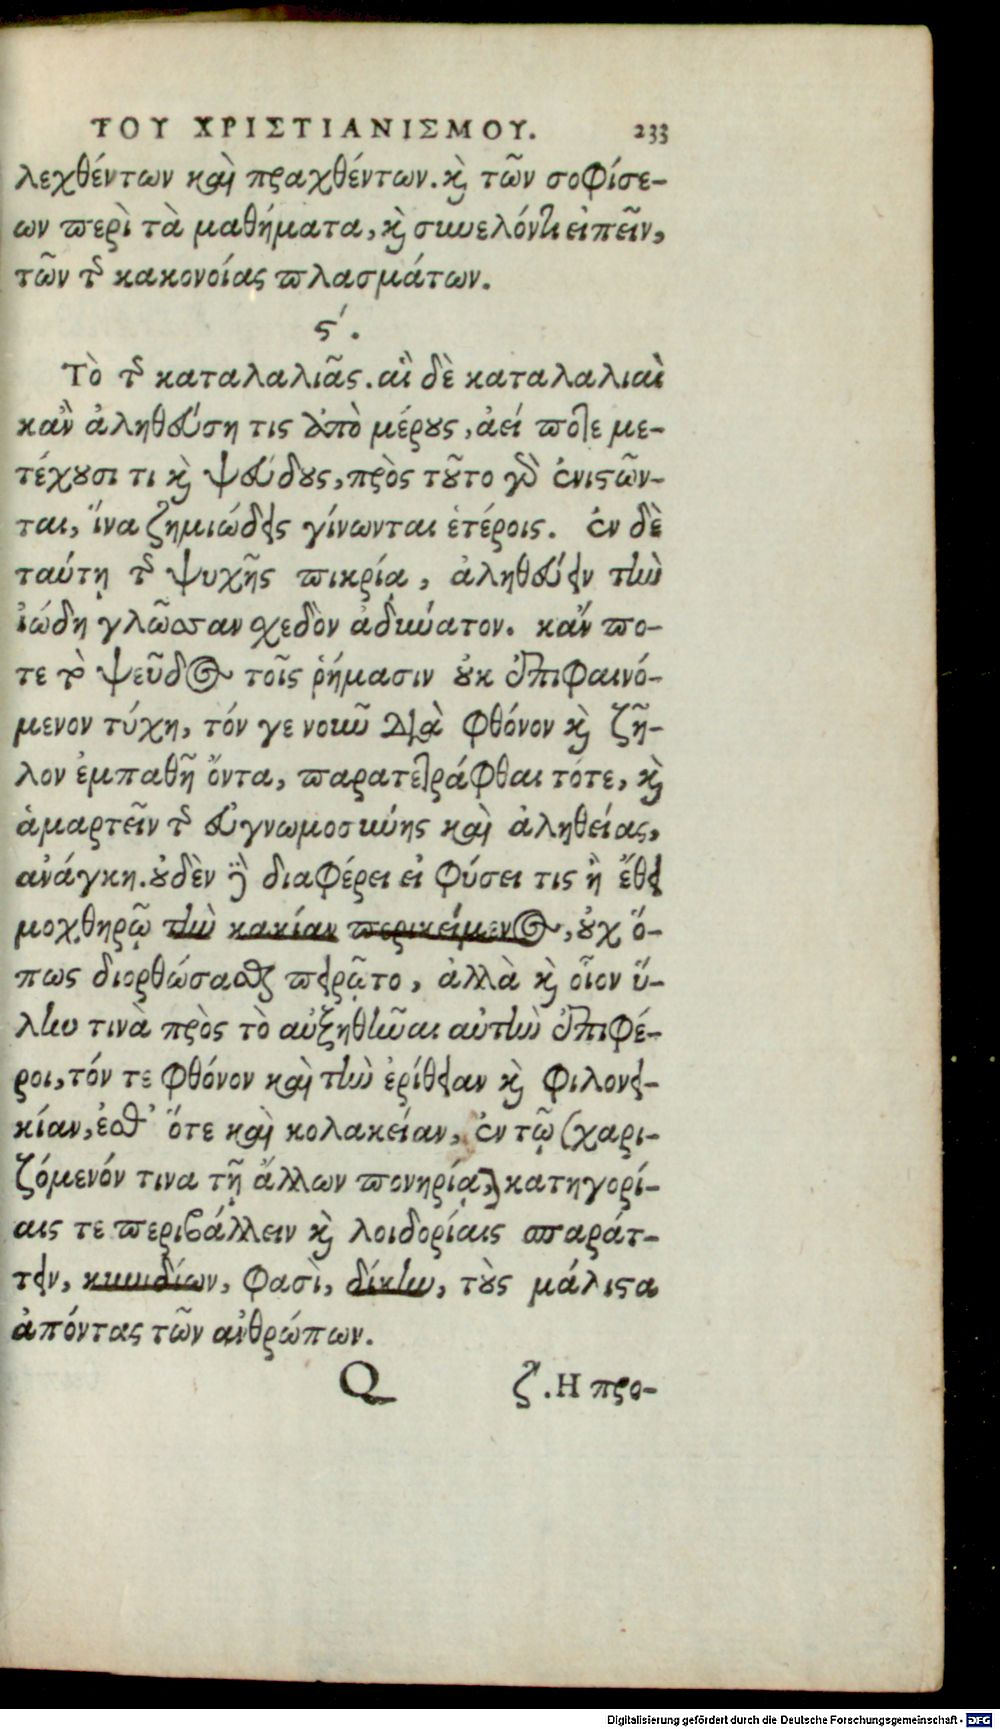 ΤΟΥ ΧΡΙΣΤΙΑΝΙΣΜΟΥ. 233
λεχθέντων καὶ πραχθέντων. κὶ τῶν σοφίσε-
ων περὶ τὰ μαθήματα, κὶ συνελόντι εἰπεῖν,
τῶν τῆς κακονοίας πλασμάτων.
ς΄.
Τὸ τῆς καταλαλιᾶς. αἱ δὲ καταλαλιαὶ
κἂν ἀληθεύσῃ τις ἀπὸ μέρους, ἀεί ποτε με-
τέχουσι τι κὶ ψεύδους, πρὸς τοῦτο γὰρ ἐνιστῶν-
ται, ἵνα ζημιώδεις γίνωνται ἑτέροις. ἐν δὲ
ταύτῃ τῆς ψυχῆς πικρίᾳ, ἀληθεύειν τὴν
ἰώδη γλῶσσαν σχεδὸν ἀδύνατον. κἄν πο-
τε τὸ ψεῦδος τοῖς ῥήμασιν οὐκ ἐπιφαινό-
μενον τύχῃ, τόν γε νοῦν διὰ φθόνον κὶ ζῆ-
λον ἐμπαθῆ ὄντα, παρατετράφθαι τότε, κὶ
ἁμαρτεῖν τῆς εὐγνωμοσύνης καὶ ἀληθείας,
ἀνάγκη. οὐδὲν γὰρ διαφέρει εἰ φύσει τις ἢ ἔθει
μοχθηρῷ τὴν κακίαν περικείμενος, οὐχ ὅ-
πως διορθώσασθαι πειρῷτο, ἀλλὰ κὶ οἷον ὕ-
λην τινὰ πρὸς τὸ αὐξηθῆναι αὐτὴν ἐπιφέ-
ροι, τόν τε φθόνον καὶ τὴν ἐρίθειαν κὶ φιλονει-
κίαν, ἐσθ' ὅτε καὶ κολακείαν, ἐν τῷ (χαρι-
ζόμενόν τινα τῇ ἄλλων πονηρίᾳ) κατηγορί-
αις τε περιβάλλειν κὶ λοιδορίαις σπαράτ-
τειν, κυνιδίων, φασὶ, δίκην, τοὺς μάλιστα
ἀπόντας τῶν ἀνθρώπων.
Q ζ. Η προ-
Digitalisierung gefördert durch die Deutsche Forschungsgemeinschaft - DFG